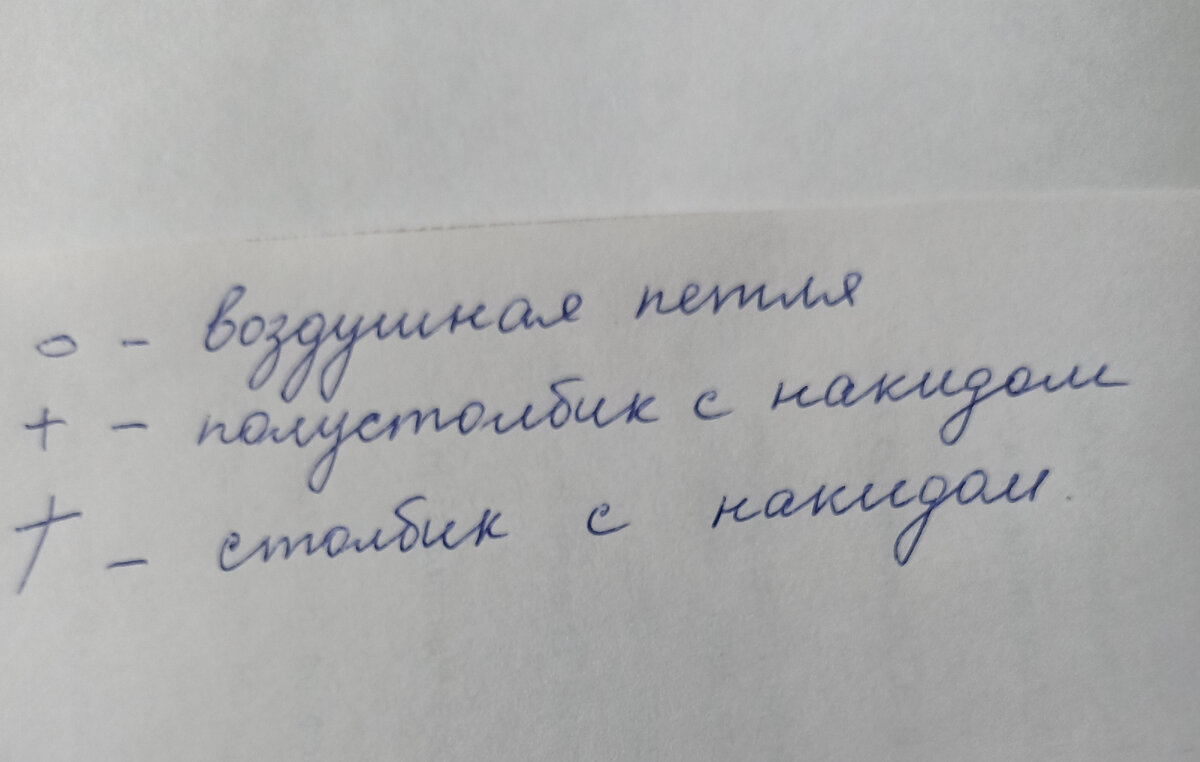 о - воздушная петля
+ - полустолбик с накидом
† - столбик с накидом.